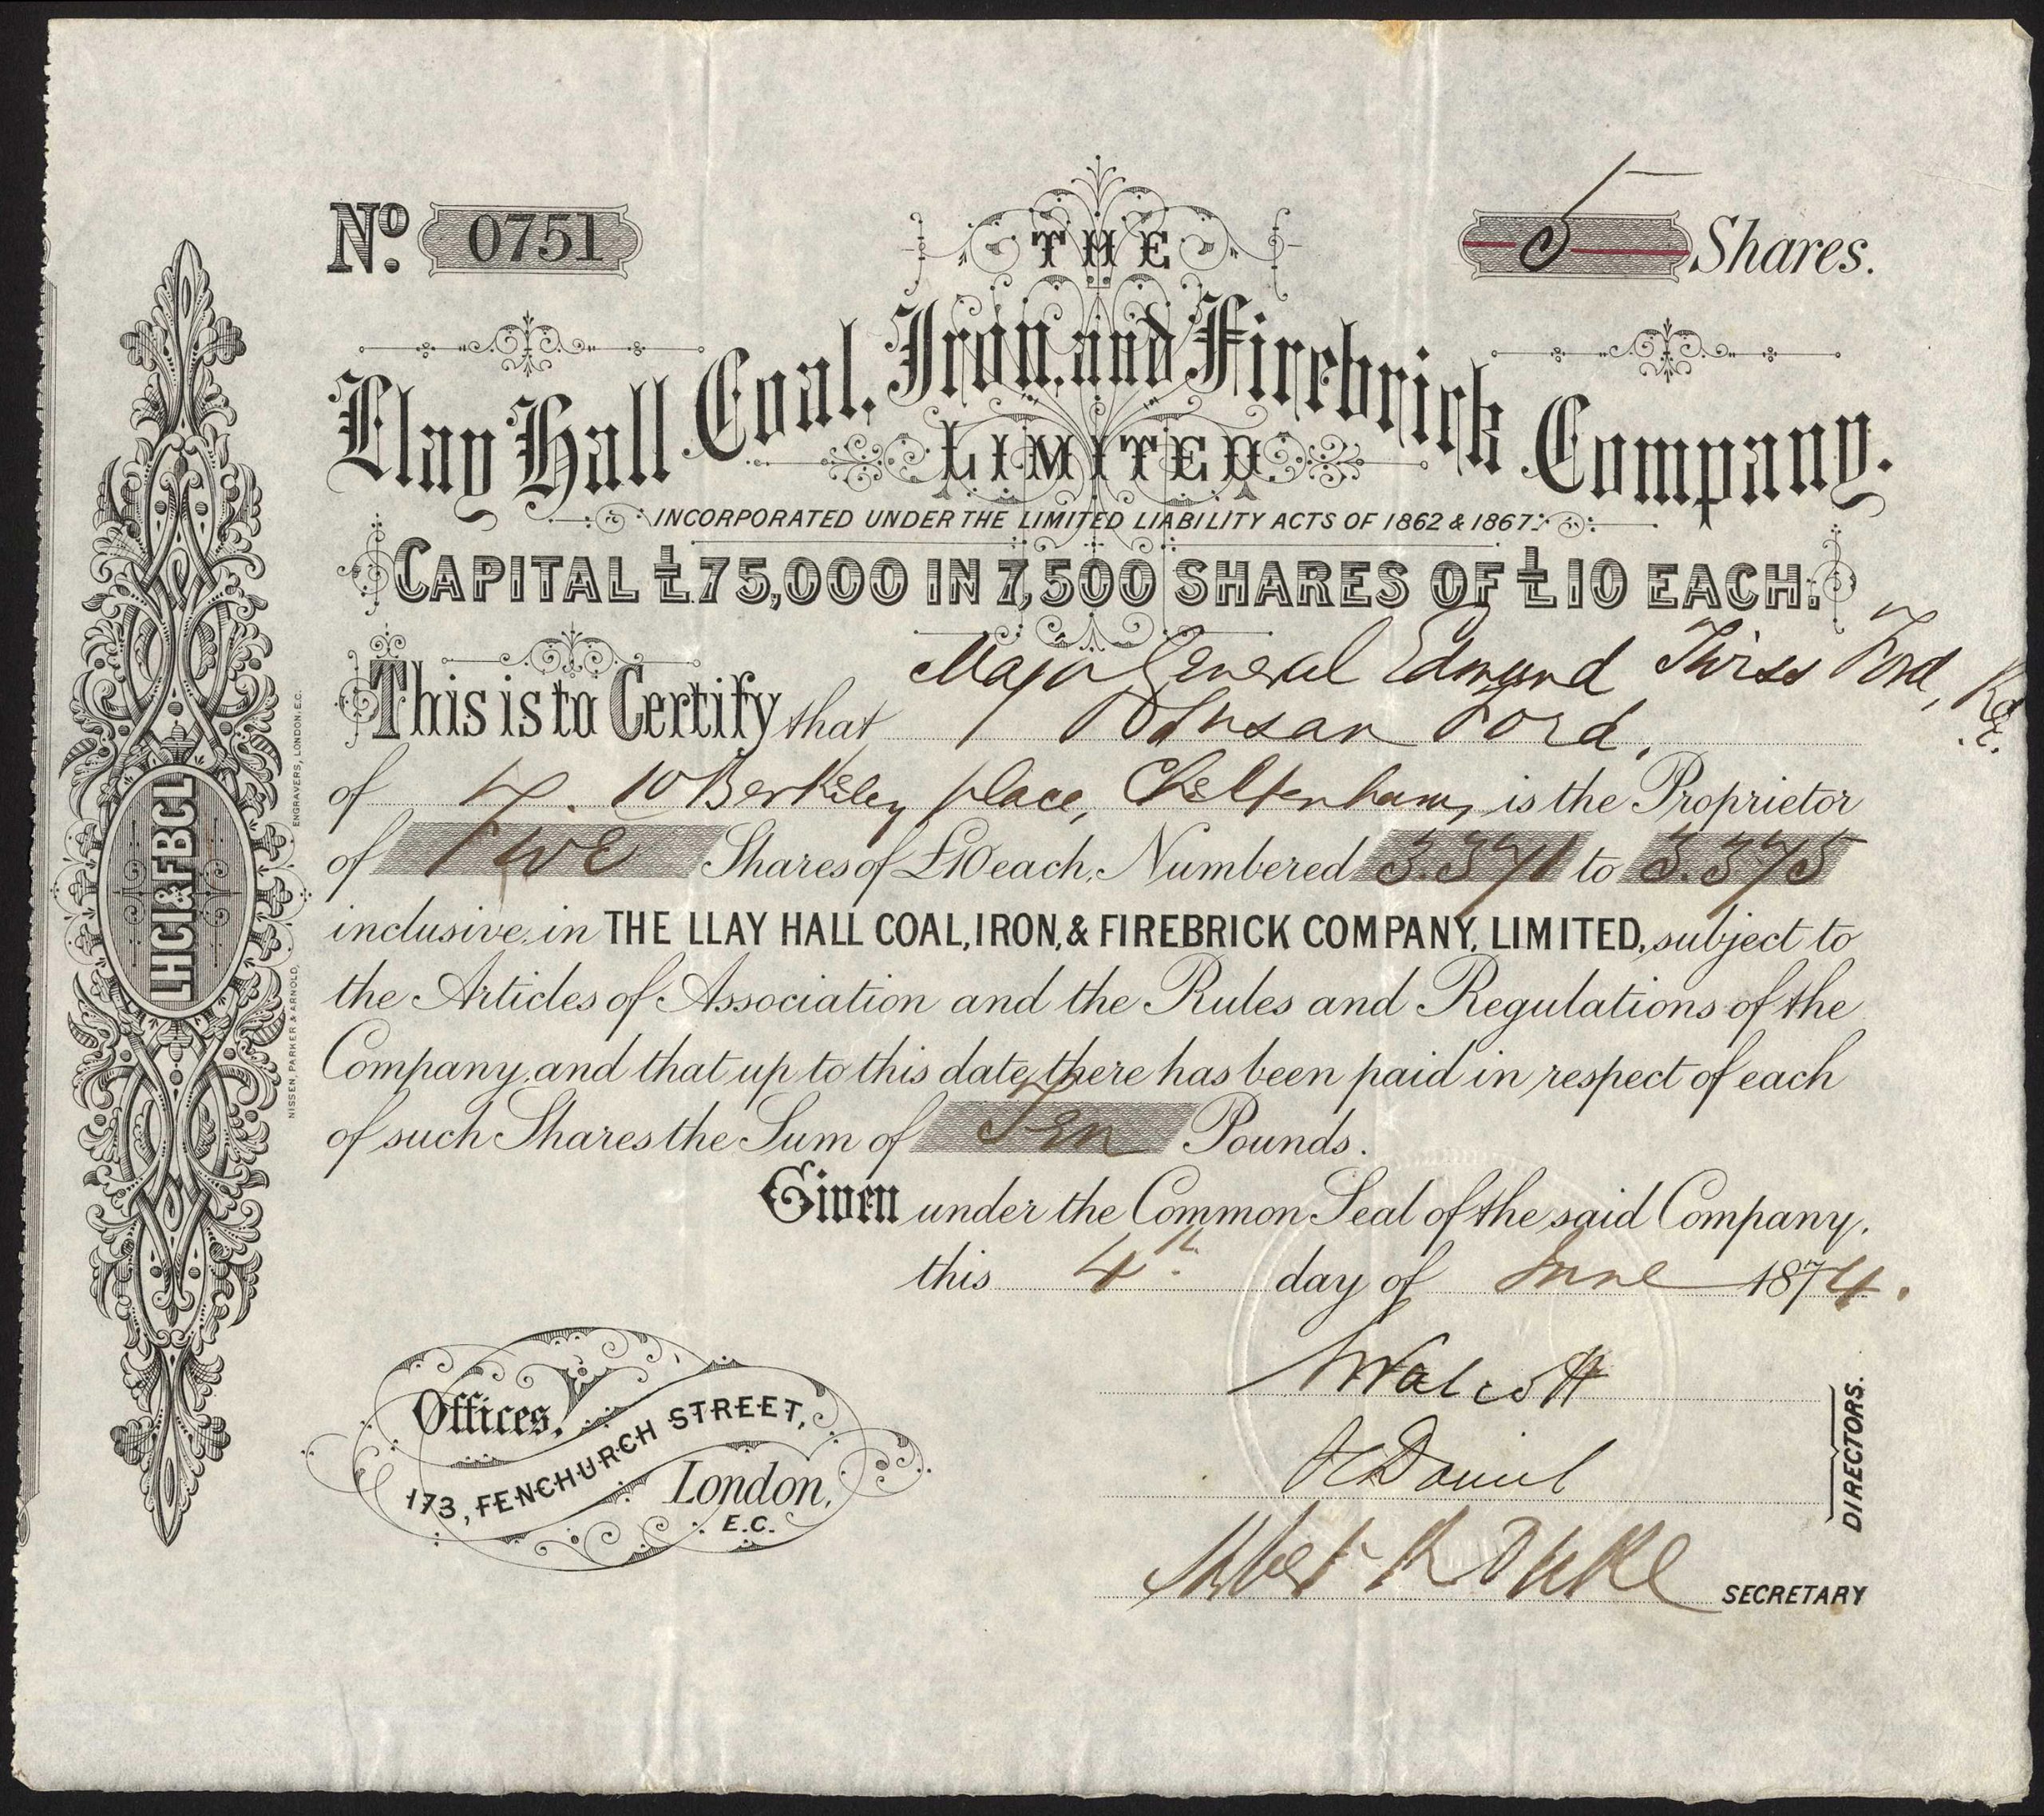 No. 0751
5 Shares.
THE
Llay Hall Coal, Iron, and Firebrick Company.
LIMITED.
INCORPORATED UNDER THE LIMITED LIABILITY ACTS OF 1862 & 1867.
CAPITAL £75,000 IN 7,500 SHARES OF £10 EACH.
Major General Edmund Twiss Ford, R.E.
This is to Certify that Susan Ford.
of 10 Berkeley place, Cheltenham, is the Proprietor
of Five Shares of £10 each, Numbered 3.371 to 3.375
inclusive, in THE LLAY HALL COAL, IRON, & FIREBRICK COMPANY, LIMITED, subject to
the Articles of Association and the Rules and Regulations of the
Company, and that up to this date, there has been paid in respect of each
of such Shares the Sum of Ten Pounds.
Given under the Common Seal of the said Company,
this 4th. day of June 1874.
Walcott
Daniel
DIRECTORS.
Duke SECRETARY
Offices,
173, FENCHURCH STREET,
London,
E.C.
LHCI&FBCL
NISSEN, PARKER & ARNOLD, ENGRAVERS, LONDON, E.C.